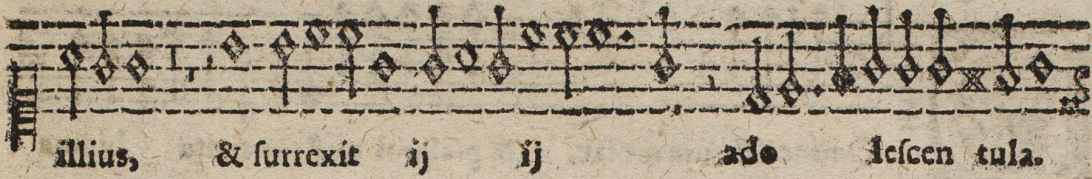 illius, & ſurrexit ij ij ado leſcen tula.